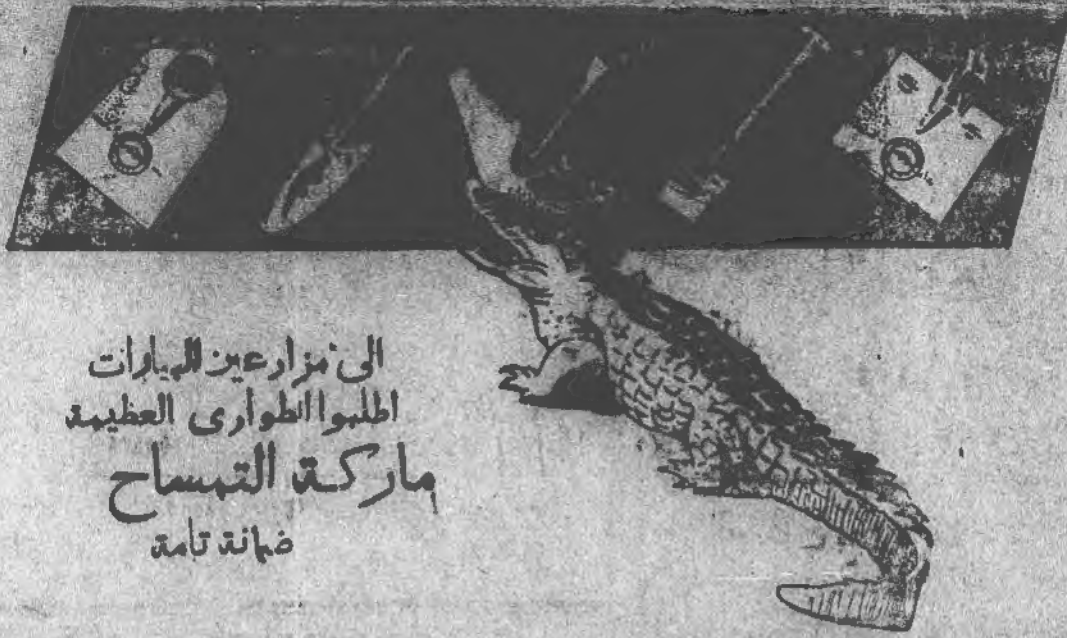 الى مزارعين البيارات
اطلبوا الطوارى العظيمة
ماركة التمساح
ضمانة تامة